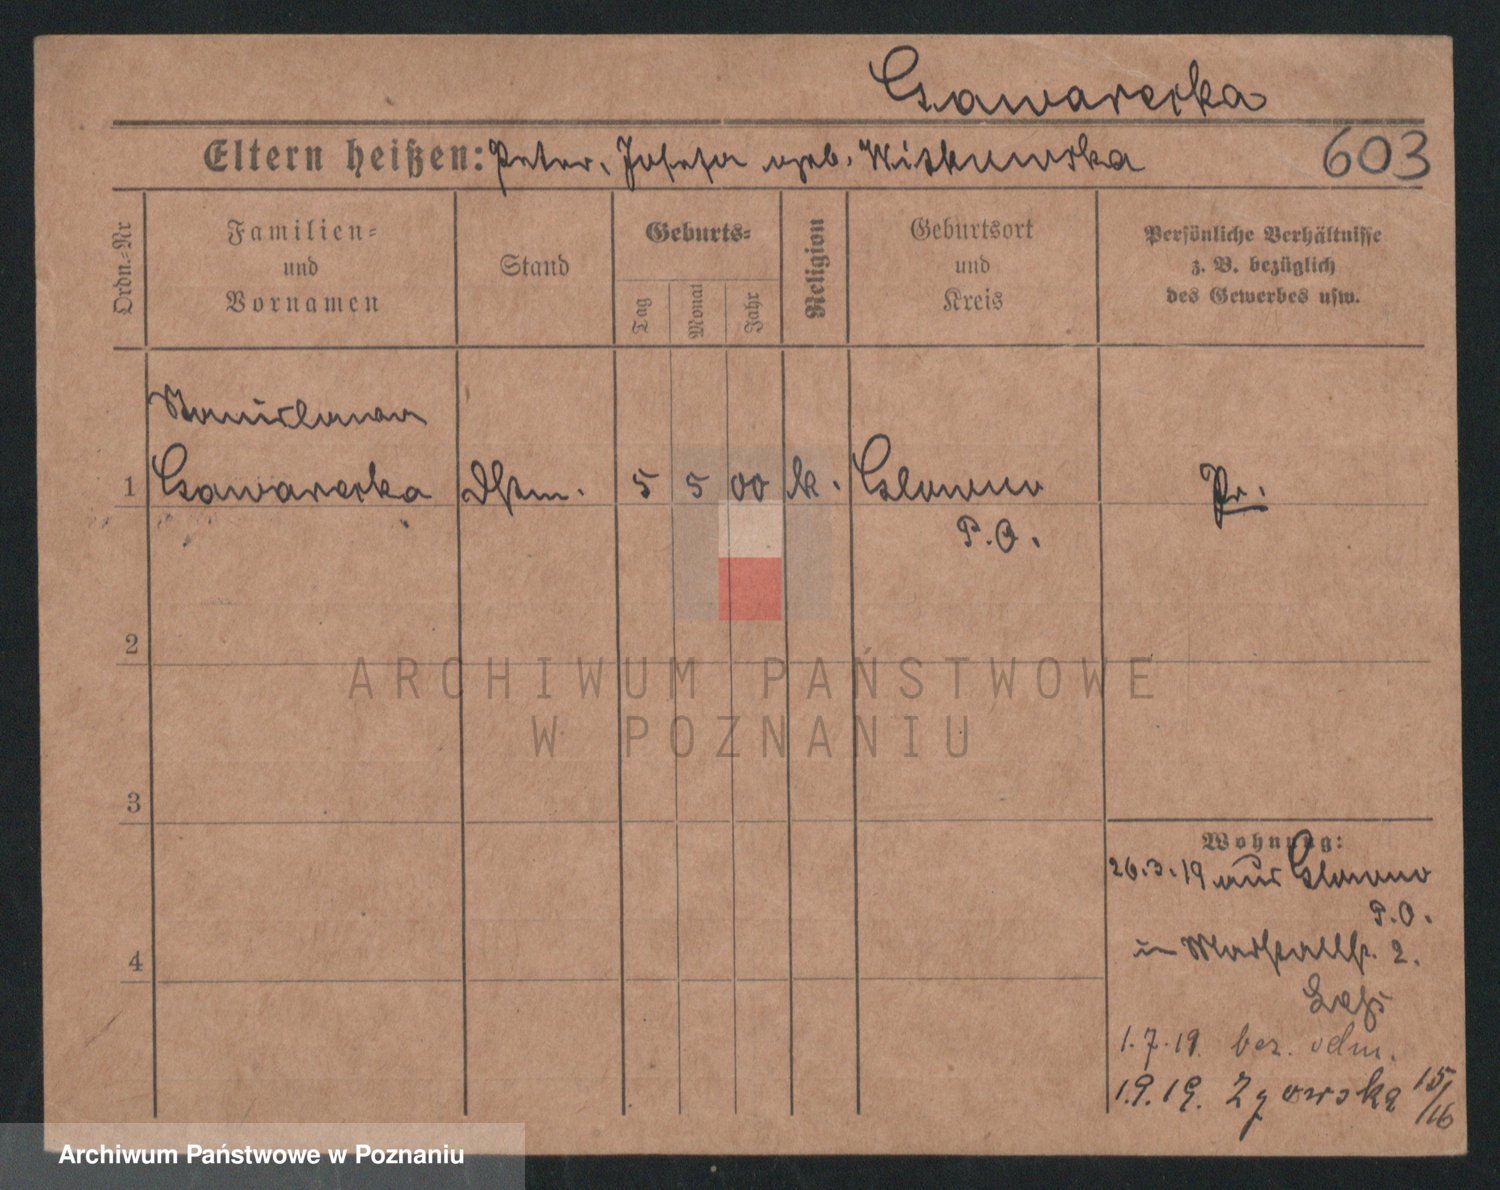 Gawarecka
Eltern heißen: Peter, Josefa geb. Witkowska
603
Ordn.-Nr
Familien-
und
Vornamen
Stand
Geburts-
Tag
Monat
Jahr
Religion
Geburtsort
und
Kreis
Persönliche Verhältnisse
z. B. bezüglich
des Gewerbes usw.
Stanislawa
1 Gawarecka Dstm. 5 5 00 k. Glowno Pr.
P.O.
2
ARCHIWUM PAŃSTWOWE
W POZNANIU
3
Wohnung:
26.3.19 aus Glowno
P.O.
4
in 2.
1.7.19. bez.
1.9.19. 15/16
Archiwum Państwowe w Poznaniu